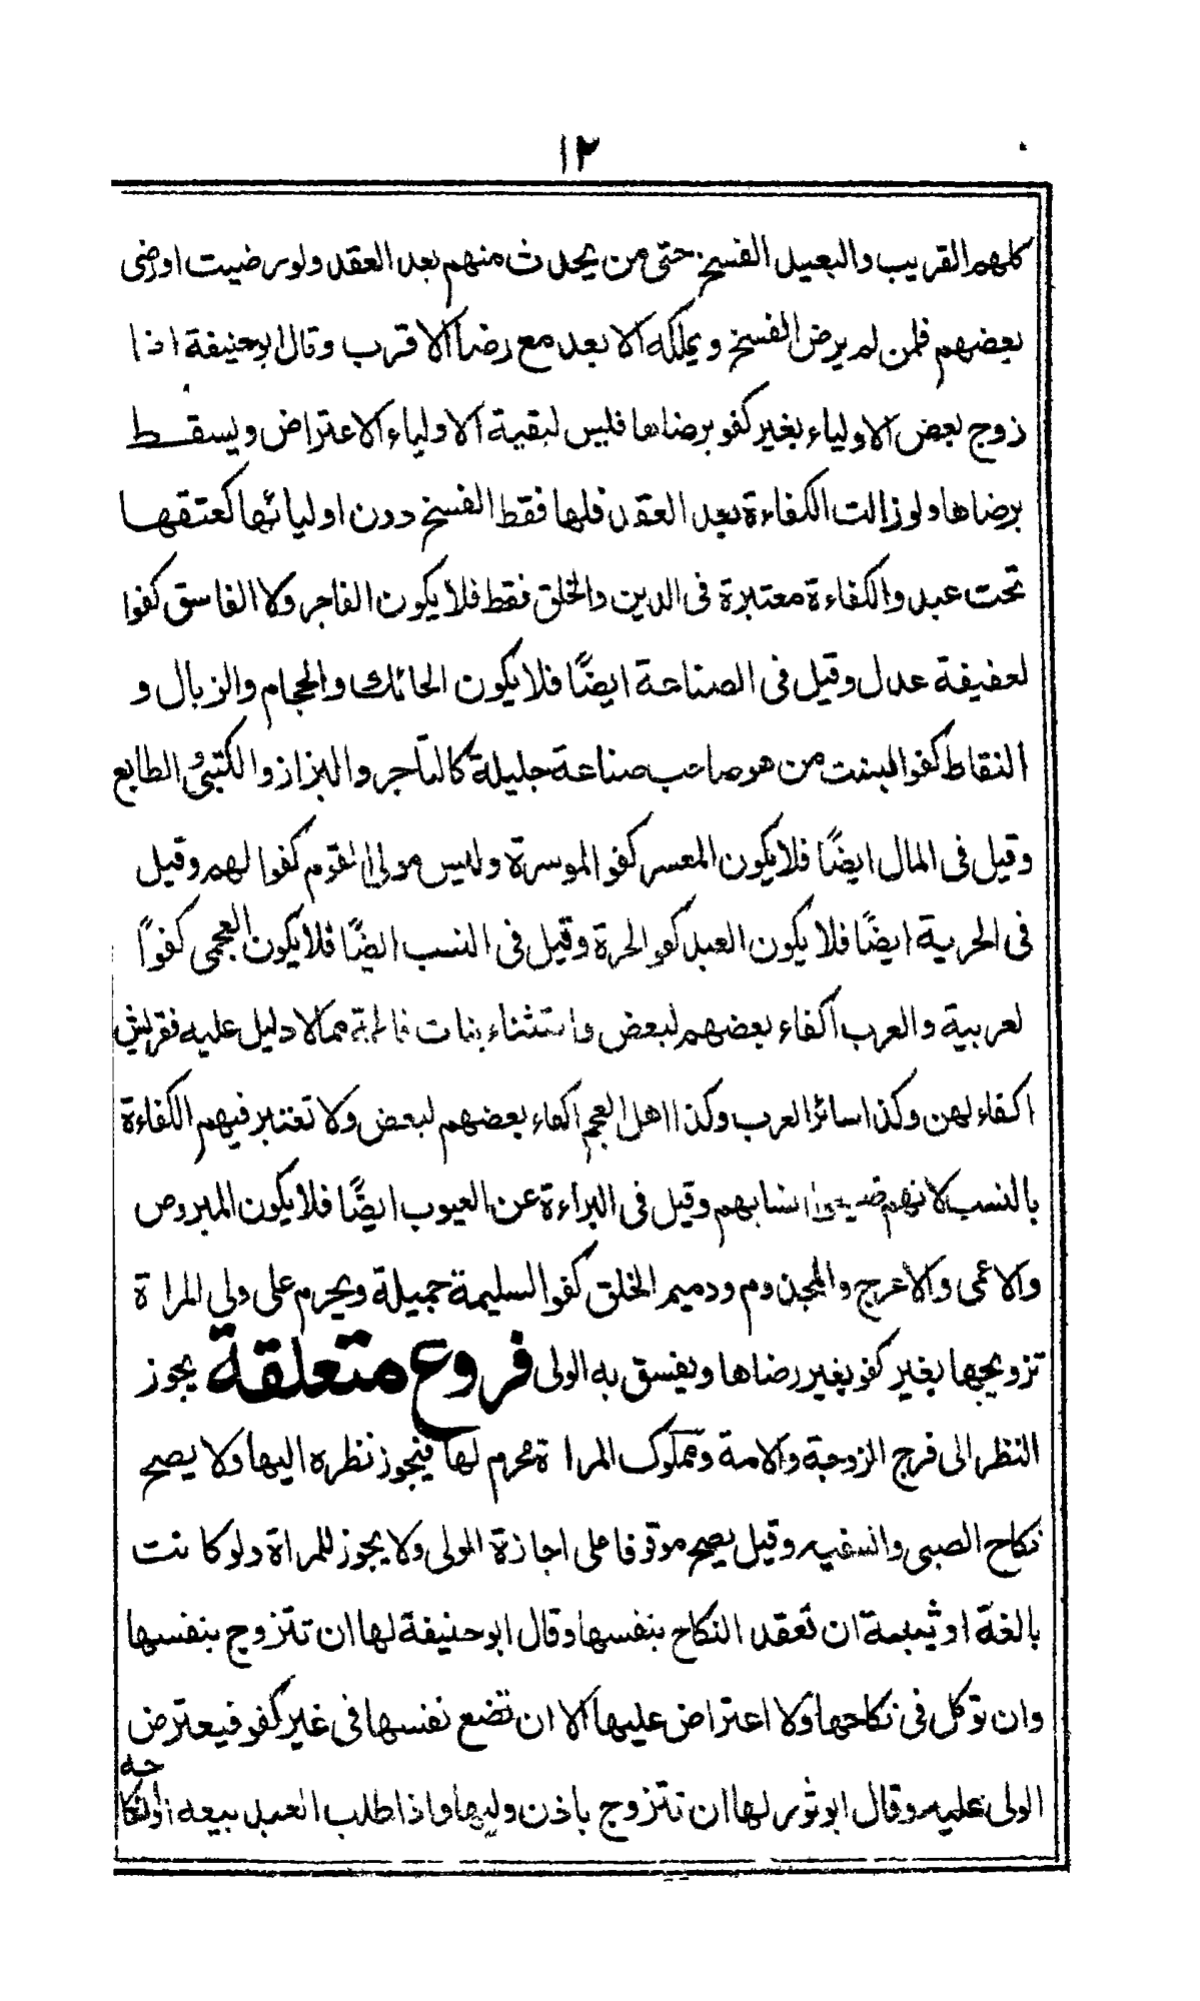 ١٢
كلهم القريب والبعيد الفسخ حتى من يحدث منهم بعد العقد ولو رضيت او رضى
بعضهم فلمن لم يرض الفسخ ويملكه الابعد مع رضا الاقرب وقال ابوحنيفة اذا
زوج بعض الاولياء بغير كفو برضاها فليس لبقية الاولياء الاعتراض ويسقط
برضاها ولو زالت الكفاءة بعد العقد فلها فقط الفسخ دون اوليائها كعتقها
تحت عبد والكفاءة معتبرة فى الدين والخلق فقط فلا يكون الفاجر ولا الفاسق كفوا
لعفيفة عدل وقيل فى الصناعة ايضًا فلا يكون الحائك والحجام والزبال و
النقاط كفوا لبنت من هو صاحب صناعة جليلة كالتاجر والبزاز والكتبى الطابع
وقيل فى المال ايضًا فلا يكون المعسر كفو الموسرة وليس مولى القوم كفوا لهم وقيل
فى الحرية ايضًا فلا يكون العبد كفو الحرة وقيل فى النسب ايضًا فلا يكون العجمى كفوًا
لعربية والعرب اكفاء بعضهم لبعض واستثناء بنات فاطمة مما لا دليل عليه فقريش
اكفاء لهن وكذا سائر العرب وكذا اهل العجم اكفاء بعضهم لبعض ولا تعتبر فيهم الكفاءة
بالنسب لانهم ضيعوا انسابهم وقيل فى البراءة عن العيوب ايضًا فلا يكون المبروص
والاعمى والاعرج والمجذوم ودميم الخلق كفوا لسليمة جميلة ويحرم على ولي المراة
تزويجها بغير كفو بغير رضاها ويفسق به الولى فروع متعلقة يجوز
النظر الى فرج الزوجة والامة ومملوك المراة محرم لها فيجوز نظره اليها ولا يصح
نكاح الصبى والسفيه وقيل يصح موقوفا على اجازة المولى ولا يجوز للمراة ولو كانت
بالغة او ثيبة ان تعقد النكاح بنفسها وقال ابو حنيفة لها ان تتزوج بنفسها
وان توكل فى نكاحها ولا اعتراض عليها الا ان تضع نفسها فى غير كفو فيعترض
الولى عليه وقال ابو ثور لها ان تتزوج باذن وليها واذا طلب العبد بيعه